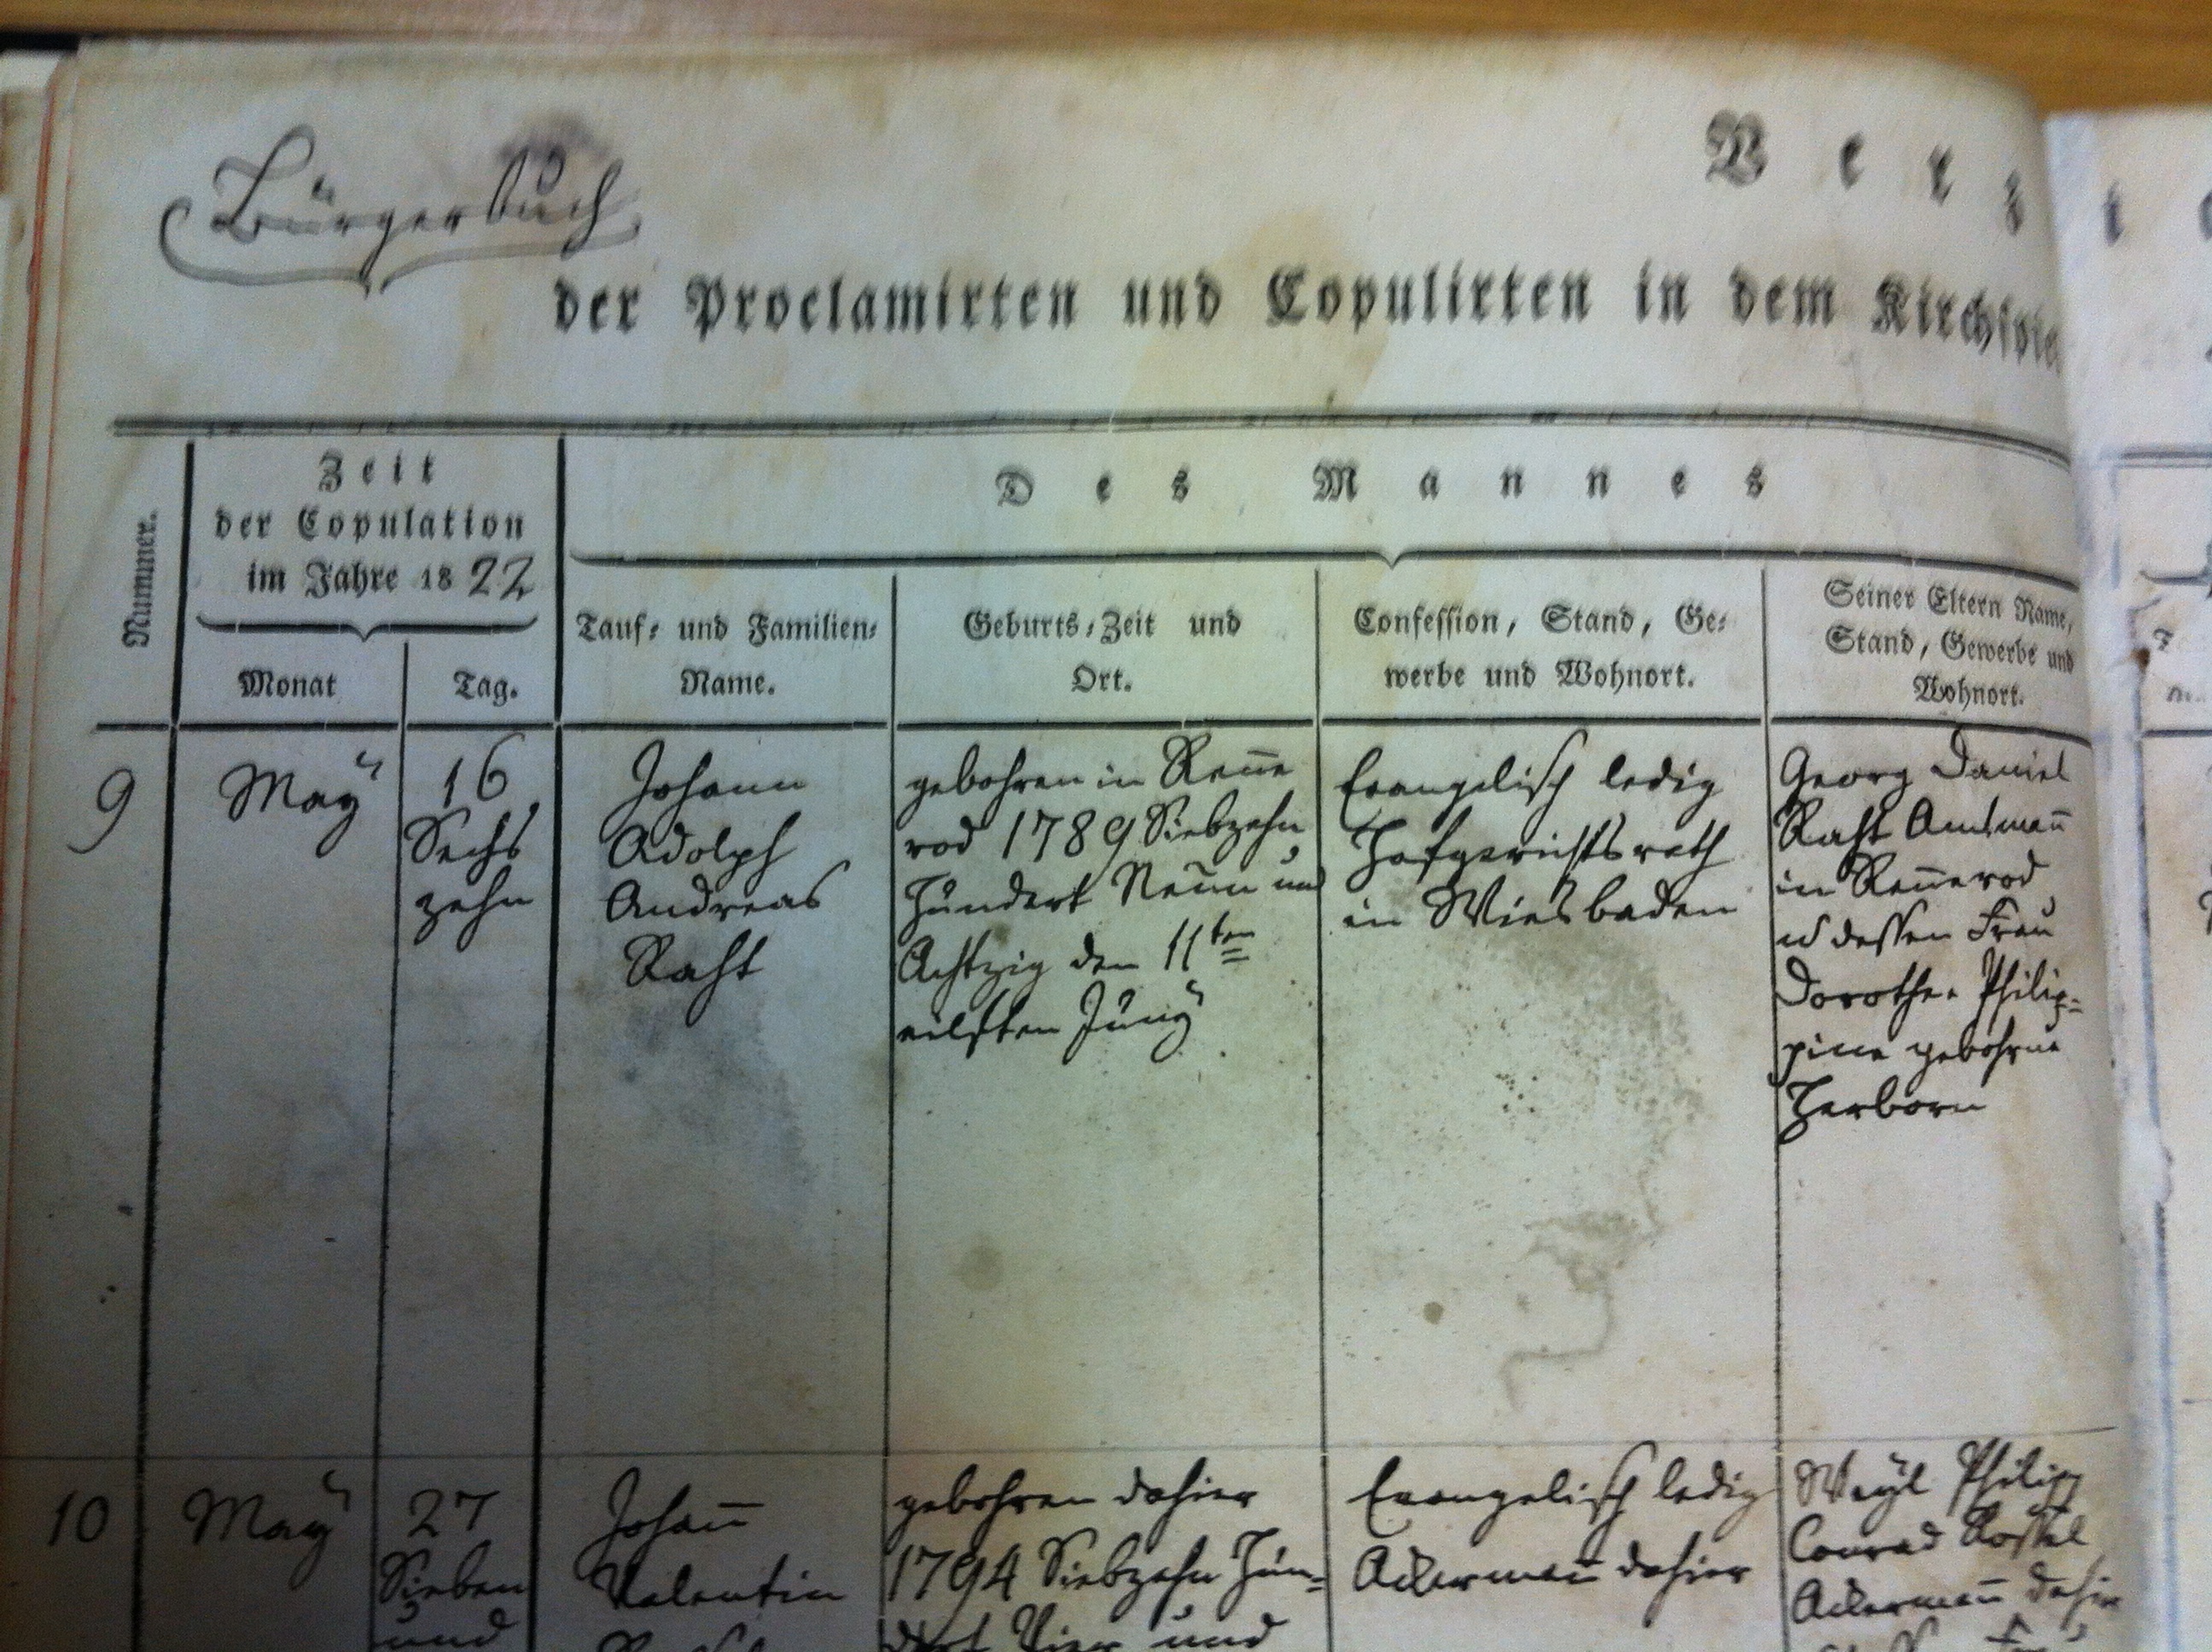 Bürgerbuch
Verzei
der Proclamirten und Copulirten in dem Kirchspie
Nummer.
Zeit
der Copulation
im Jahre 1822
Monat
Tag.
Des Mannes
Tauf- und Familien-
Name.
Geburts-Zeit und
Ort.
Confession, Stand, Ge-
werbe und Wohnort.
Seiner Eltern Name,
Stand, Gewerbe und
Wohnort.
9
Maÿ
16
Sechs
zehn
Johann
Adolph
Andreas
Raht
gebohren in Rene̅
rod 1789 Siebzehn
Hundert Neun und
Achtzig den 11ten
eilften Junÿ
Evangelisch ledig
Hofgerichtsrath
in Wiesbaden
Georg Daniel
Raht Amtman̅
in Ren̅erod
u dessen Frau
Dorothea Philip-
pine gebohrne
Herborn
10
Maÿ
27
Sieben
und
Johan̅
Valentin
gebohren dahier
1794 Siebzehn Hun-
dert Vier und
Evangelisch ledig
Ackerman̅ dahier
Weyl Philipp
Conrad Rossel
Ackerman̅ dahier